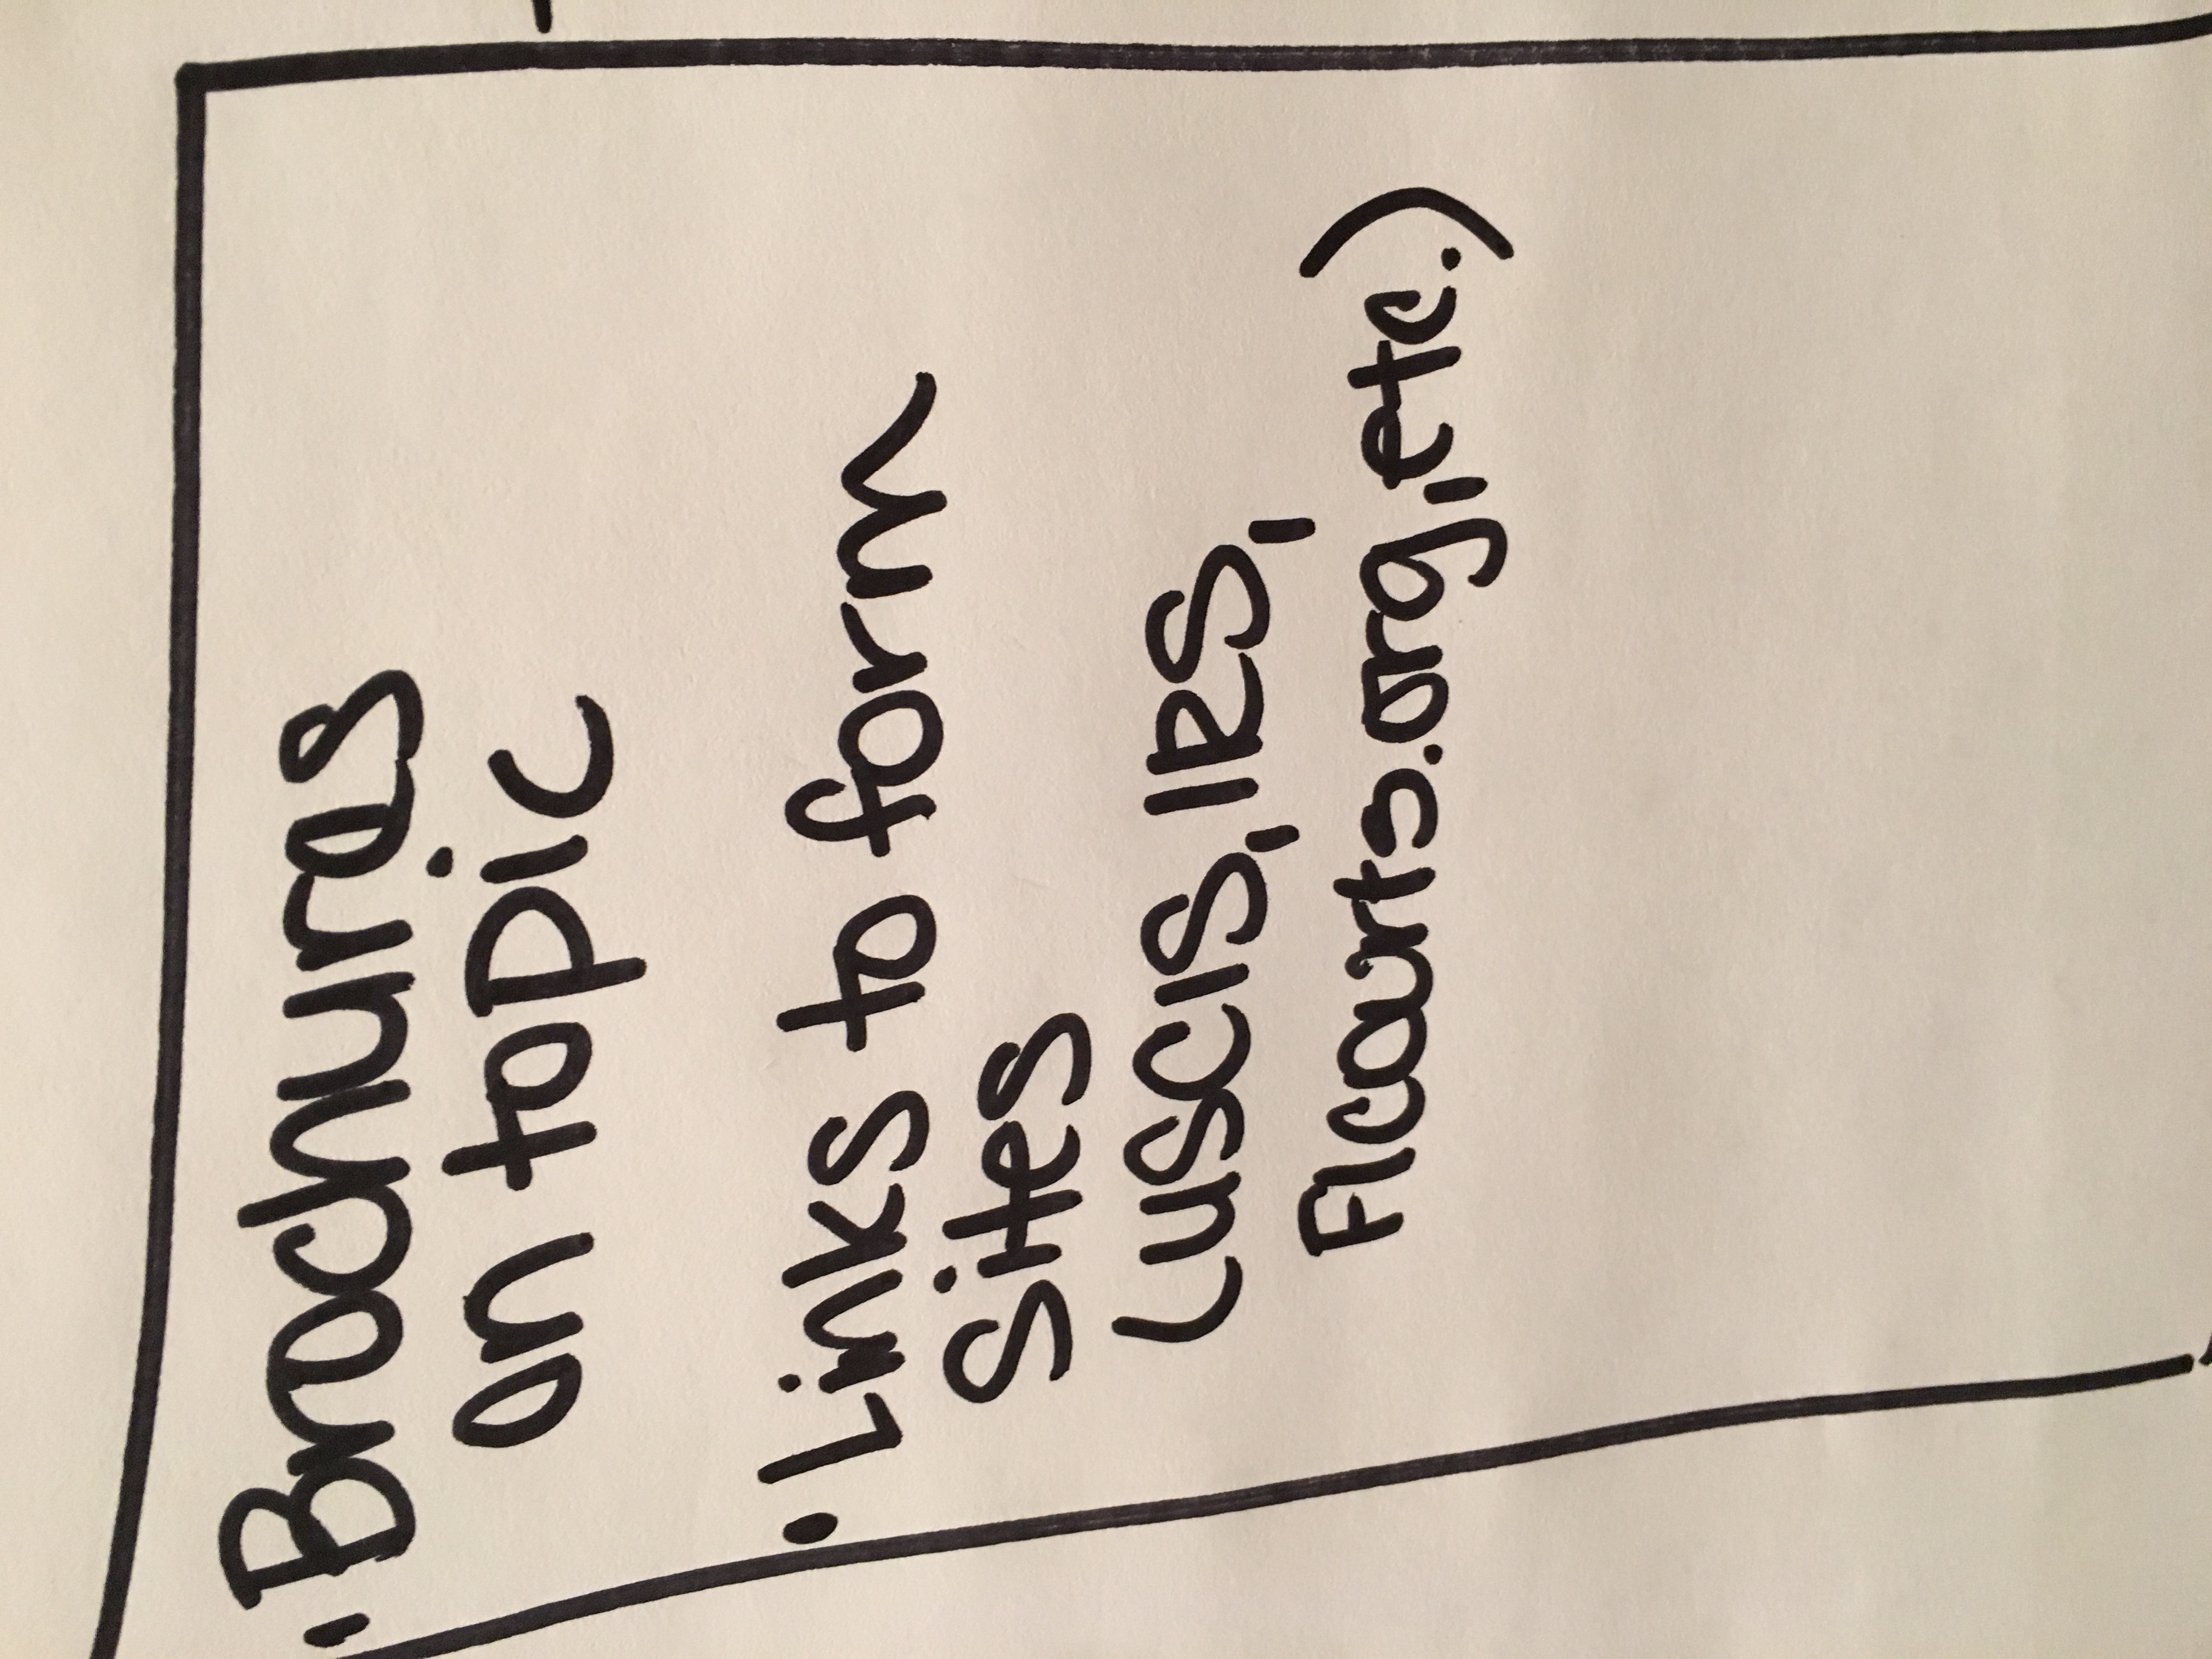 • Brochures
on topic
• Links to form
Sites
(USCIS, IRS,
Flcourts.org, etc.)